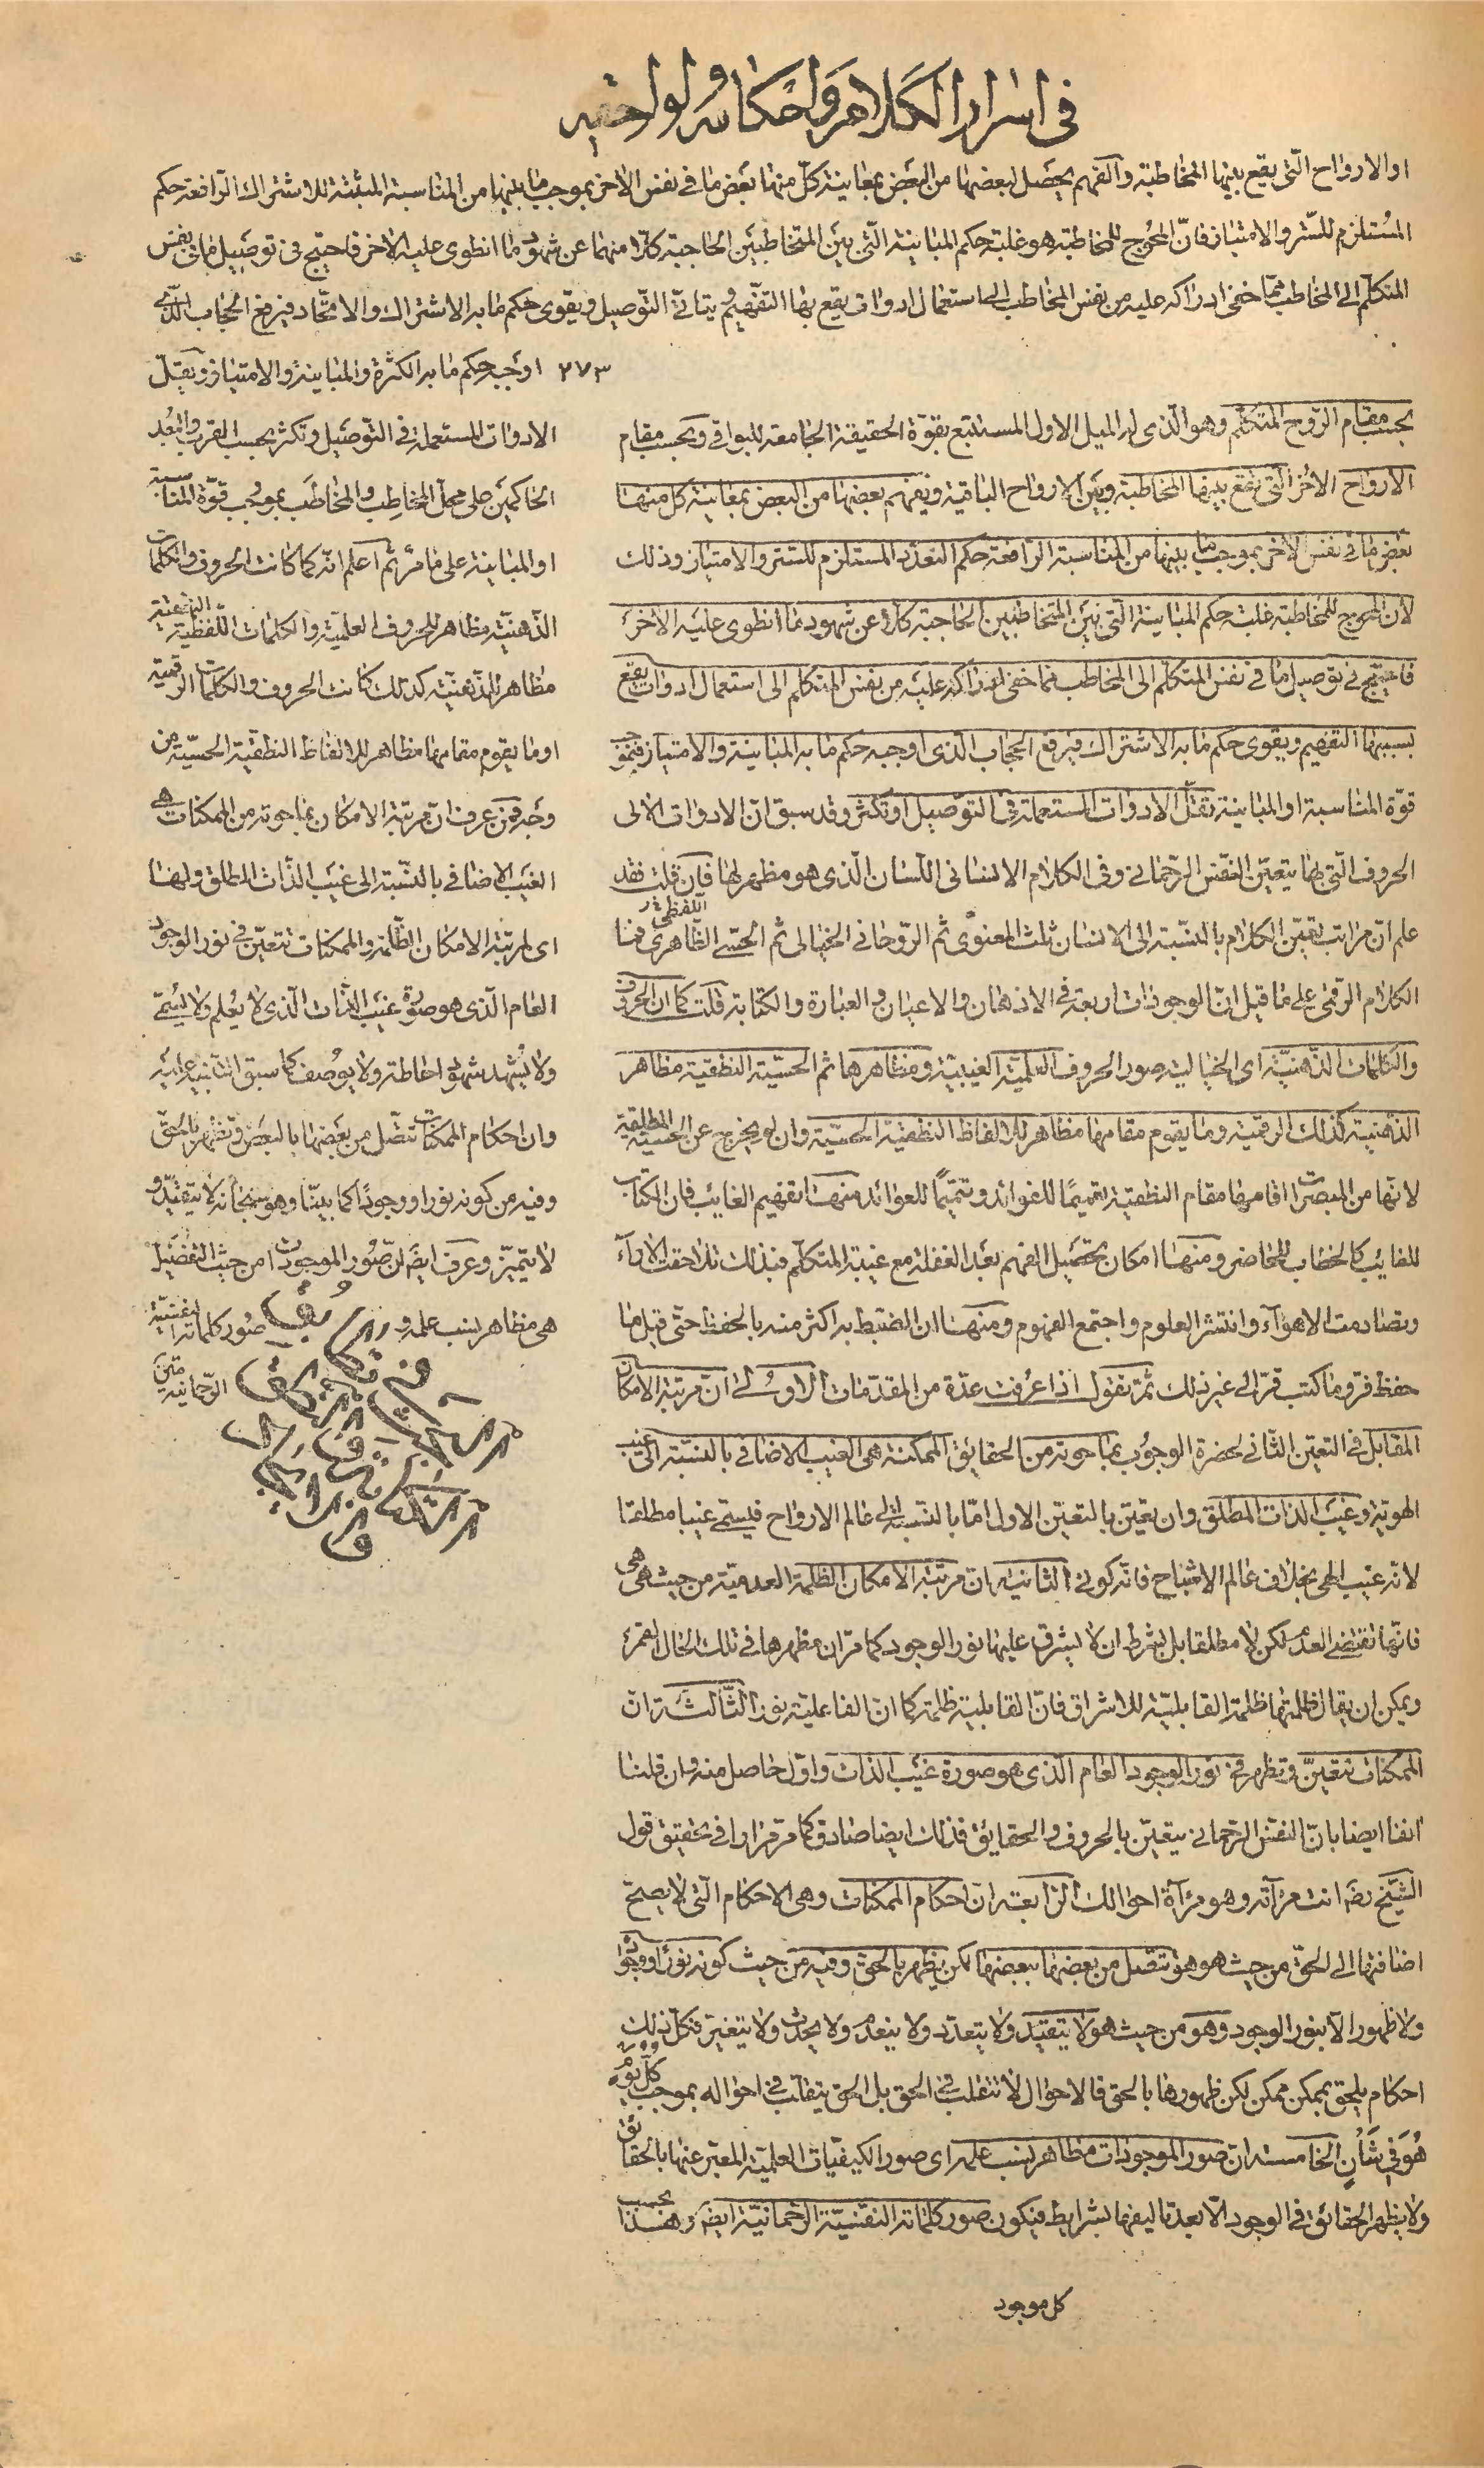 فى اسرار الكلام واحكامه ولواحقه
او الارواح الّتى يقع بينها المخاطبة والفهم يحصل لبعضها من البعض بمعاينة كلّ منها بعض ما فى نفس الاخر بموجب ما بينها من المناسبة المثبتة للاشتراك الرافعة حكم
المستلزم للستر والامتياز فانّ المحوج للمخاطبة هو غلبة حكم المباينة الّتى بين المتخاطبين الحاجبة كلّا منهما عن شهود ما انطوى عليه الاخر فاحتيج فى توصيل ما فى نفس
المتكلّم الى المخاطب ممّا خفى ادراكه عليه من نفس المخاطب الى استعمال ادوات يقع بها التفهيم ويتاتّى التوصيل ويقوى حكم ما به الاشتراك والاتّحاد فيرفع الحجاب الّذى
٢٧٣ اوجبه حكم ما به الكثرة والمباينة والامتياز ويقلّ
الادوات المستعملة فى التوصيل وتكثر بحسب القرب والبعد
الحاكمين على محلّ المخاطِب والمخاطَب بموجب قوّة المناسبة
او المباينة على ما مرّ ثم اعلم انّه كما كانت الحروف والكلمات
الذهنيّة مظاهر للحروف العلميّة والكلمات اللفظيّة
مظاهر للذهنيّة كذلك كانت الحروف والكلمات الرقميّة
او ما يقوم مقامها مظاهر للالفاظ النطقيّة الحسيّة من
وجه فمن عرف انّ مرتبة الامكان بما حوته من الممكنات هى
الغيب الاضافى بالنسبة الى غيب الذات المطلق ولها
اى لمرتبة الامكان الظلمة والممكنات تتعيّن فى نور الوجود
العام الّذى هو صورة غيب الذات الّذى لا يعلم ولا يسمّى
ولا يشهد شهود احاطة ولا يوصف كما سبق التنبيه عليه
وانّ احكام الممكنات تتصل من بعضها بالبعض وتظهر بالحق
وفيه من كونه نورا ووجودًا كما بيّنا وهو سبحانه لا يتقيّد و
لا يتميّز وعرف ايضا انّ صور الموجودات من حيث التفصيل
هى مظاهر نسب علمه و صور كلماته النفسيّة
الرحمانية
بحسب مقام الروح المتكلّم وهو الّذى له الميل الاول المستتبع بقوّة الحقيقة الجامعة للبواقى وبحسب مقام
الارواح الاخر الّتى يقع بينها المخاطبة وبين الارواح الباقية ويفهم بعضها من البعض بمعاينة كل منها
بعض ما فى نفس الاخر بموجب ما بينها من المناسبة الرافعة حكم التعدّد المستلزم للستر والامتياز وذلك
لان المحوج للمخاطبة غلبة حكم المباينة الّتى بين المتخاطبين الحاجبة كلّا عن شهود ما انطوى عليه الاخر
فاحتيج فى توصيل ما فى نفس المتكلّم الى المخاطب ممّا خفى ادراكه عليه من نفس المتكلّم الى استعمال ادوات يقع
بسببها التفهيم ويقوى حكم ما به الاشتراك فيرفع الحجاب الّذى اوجبه حكم ما به المباينة والامتياز فبموجب
قوّة المناسبة او المباينة تقلّ الادوات المستعملة فى التوصيل او تكثر وقد سبق انّ الادوات الاولى
الحروف الّتى بها يتعيّن النفس الرحمانى وفى الكلام الانسانى اللسان الّذى هو مظهر لها فان قلت فقد
علم انّ مراتب تعيّن الكلام بالنسبة الى الانسان ثلث المعنوىّ ثم الروحانى الخيالى ثم الحسّى اللفظى الظاهرى فما
الكلام الرقمى على ما قيل انّ الوجودات اربعة فى الاذهان والاعيان والعبارة والكتابة قلت كما ان الحروف
والكلمات الذهنيّة اى الخيالية صور الحروف العلميّة الغيبيّة ومظاهرها ثم الحسيّة النطقيّة مظاهر
الذهنيّة كذلك الرقميّة وما يقوم مقامها مظاهر للالفاظ النطقيّة الحسيّة وان لم يخرج عن الحسيّة المطلقة
لانّها من المبصرات اقامها مقام النطقيّة تعميمًا للفوائد وتتميمًا للعوائد منها تفهيم الغايب فان الكتاب
للغايب كالخطاب للحاضر ومنها امكان تحصيل الفهم بعد الغفلة مع غيبة المتكلّم فبذلك تلاحقت الاراء
وتصادمت الاهواء وانتشر العلوم واجتمع الفهوم ومنها ان الضبط به اكثر منه بالحفظ حتّى قيل ما
حفظ فرّ وما كتب قرّ الى غير ذلك ثمّ نقول اذا عرفت عدّة من المقدّمات الاولى انّ مرتبة الامكان
المقابل فى التعيّن الثانى لحضرة الوجوب بما حوته من الحقائق الممكنة هى الغيب الاضافى بالنسبة الى غيب
الهوية وغيب الذات المطلق وان تعيّن بالتعيّن الاول امّا بالنسبة الى عالم الارواح فيسمّى غيبا مطلقا
لانه غيب الهى بخلاف عالم الاشباح فانّه كونى الثانية ان مرتبة الامكان الظلمة العدميّة من حيث هى هى
فانّها تقتضى العدم لكن لا مطلقا بل بشرط ان لا يشرق عليها نور الوجود كما مرّ ان مظهرها فى تلك الحال القمر
ويمكن ان يقال ظلمتها ظلمة القابليّة للاشراق فانّ القابلية ظلمة كما انّ الفاعليّة نور الثالثة انّ
الممكنات تتعيّن وتظهر فى نور الوجود العام الّذى هو صورة غيب الذات واوّل حاصل منه وان قلنا
انفا ايضا بانّ النفس الرحمانى يتعيّن بالحروف والحقايق فذلك ايضا صادق كما مرّ مرارا فى تحقيق قول
الشيخ رضه انت مرآته وهو مرآة احوالك الرابعة انّ احكام الممكنات وهى الاحكام الّتى لا يصحّ
اضافتها الى الحقّ من حيث هو هو تتصل من بعضها ببعضها لكن يظهر بالحق وفيه من حيث كونه نورا ووجودا
ولا ظهور الّا بنور الوجود وهو من حيث هو لا يتقيّد ولا يتعدّد ولا ينعدم ولا يحدث ولا يتغيّر فكلّ ذلك
احكام يلحق بممكن ممكن لكن ظهورها بالحق فالاحوال لا تتقلّب فى الحق بل الحق يتقلّب فى احواله بموجب كلّ يوم
هُوَ فى شَأنٍ الخامسة انّ صور الموجودات مظاهر نسب علمه اى صور الكيفيّات العلميّة المعبّر عنها بالحقائق
ولا يظهر الحقائق فى الوجود الّا بعد تاليفها بشرايط فيكون صور كلماته النفسيّة الرحمانيّة ايضا وهذا بحسب
كل موجود